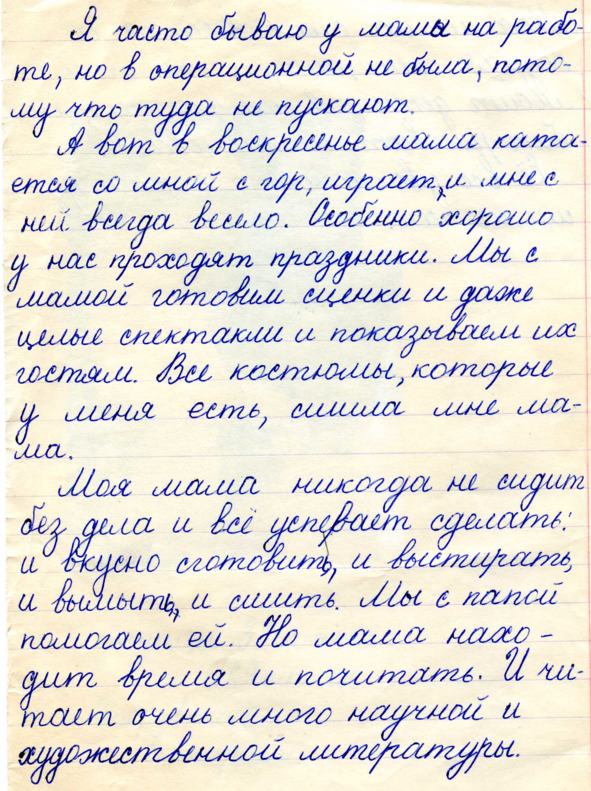 Я часто бываю у мамы на рабо-
те, но в операционной не была, пото-
му что туда не пускают.
А вот в воскресенье мама ката-
ется со мной с гор, играет, и мне с
ней всегда весело. Особенно хорошо
у нас проходят праздники. Мы с
мамой готовим сценки и даже
целые спектакли и показываем их
гостям. Все костюмы, которые
у меня есть, сшила мне ма-
ма.
Моя мама никогда не сидит
без дела и всё успевает сделать:
и вкусно сготовить, и выстирать,
и вымыть, и сшить. Мы с папой
помогаем ей. Но мама нахо-
дит время и почитать. И чи-
тает очень много научной и
художественной литературы.